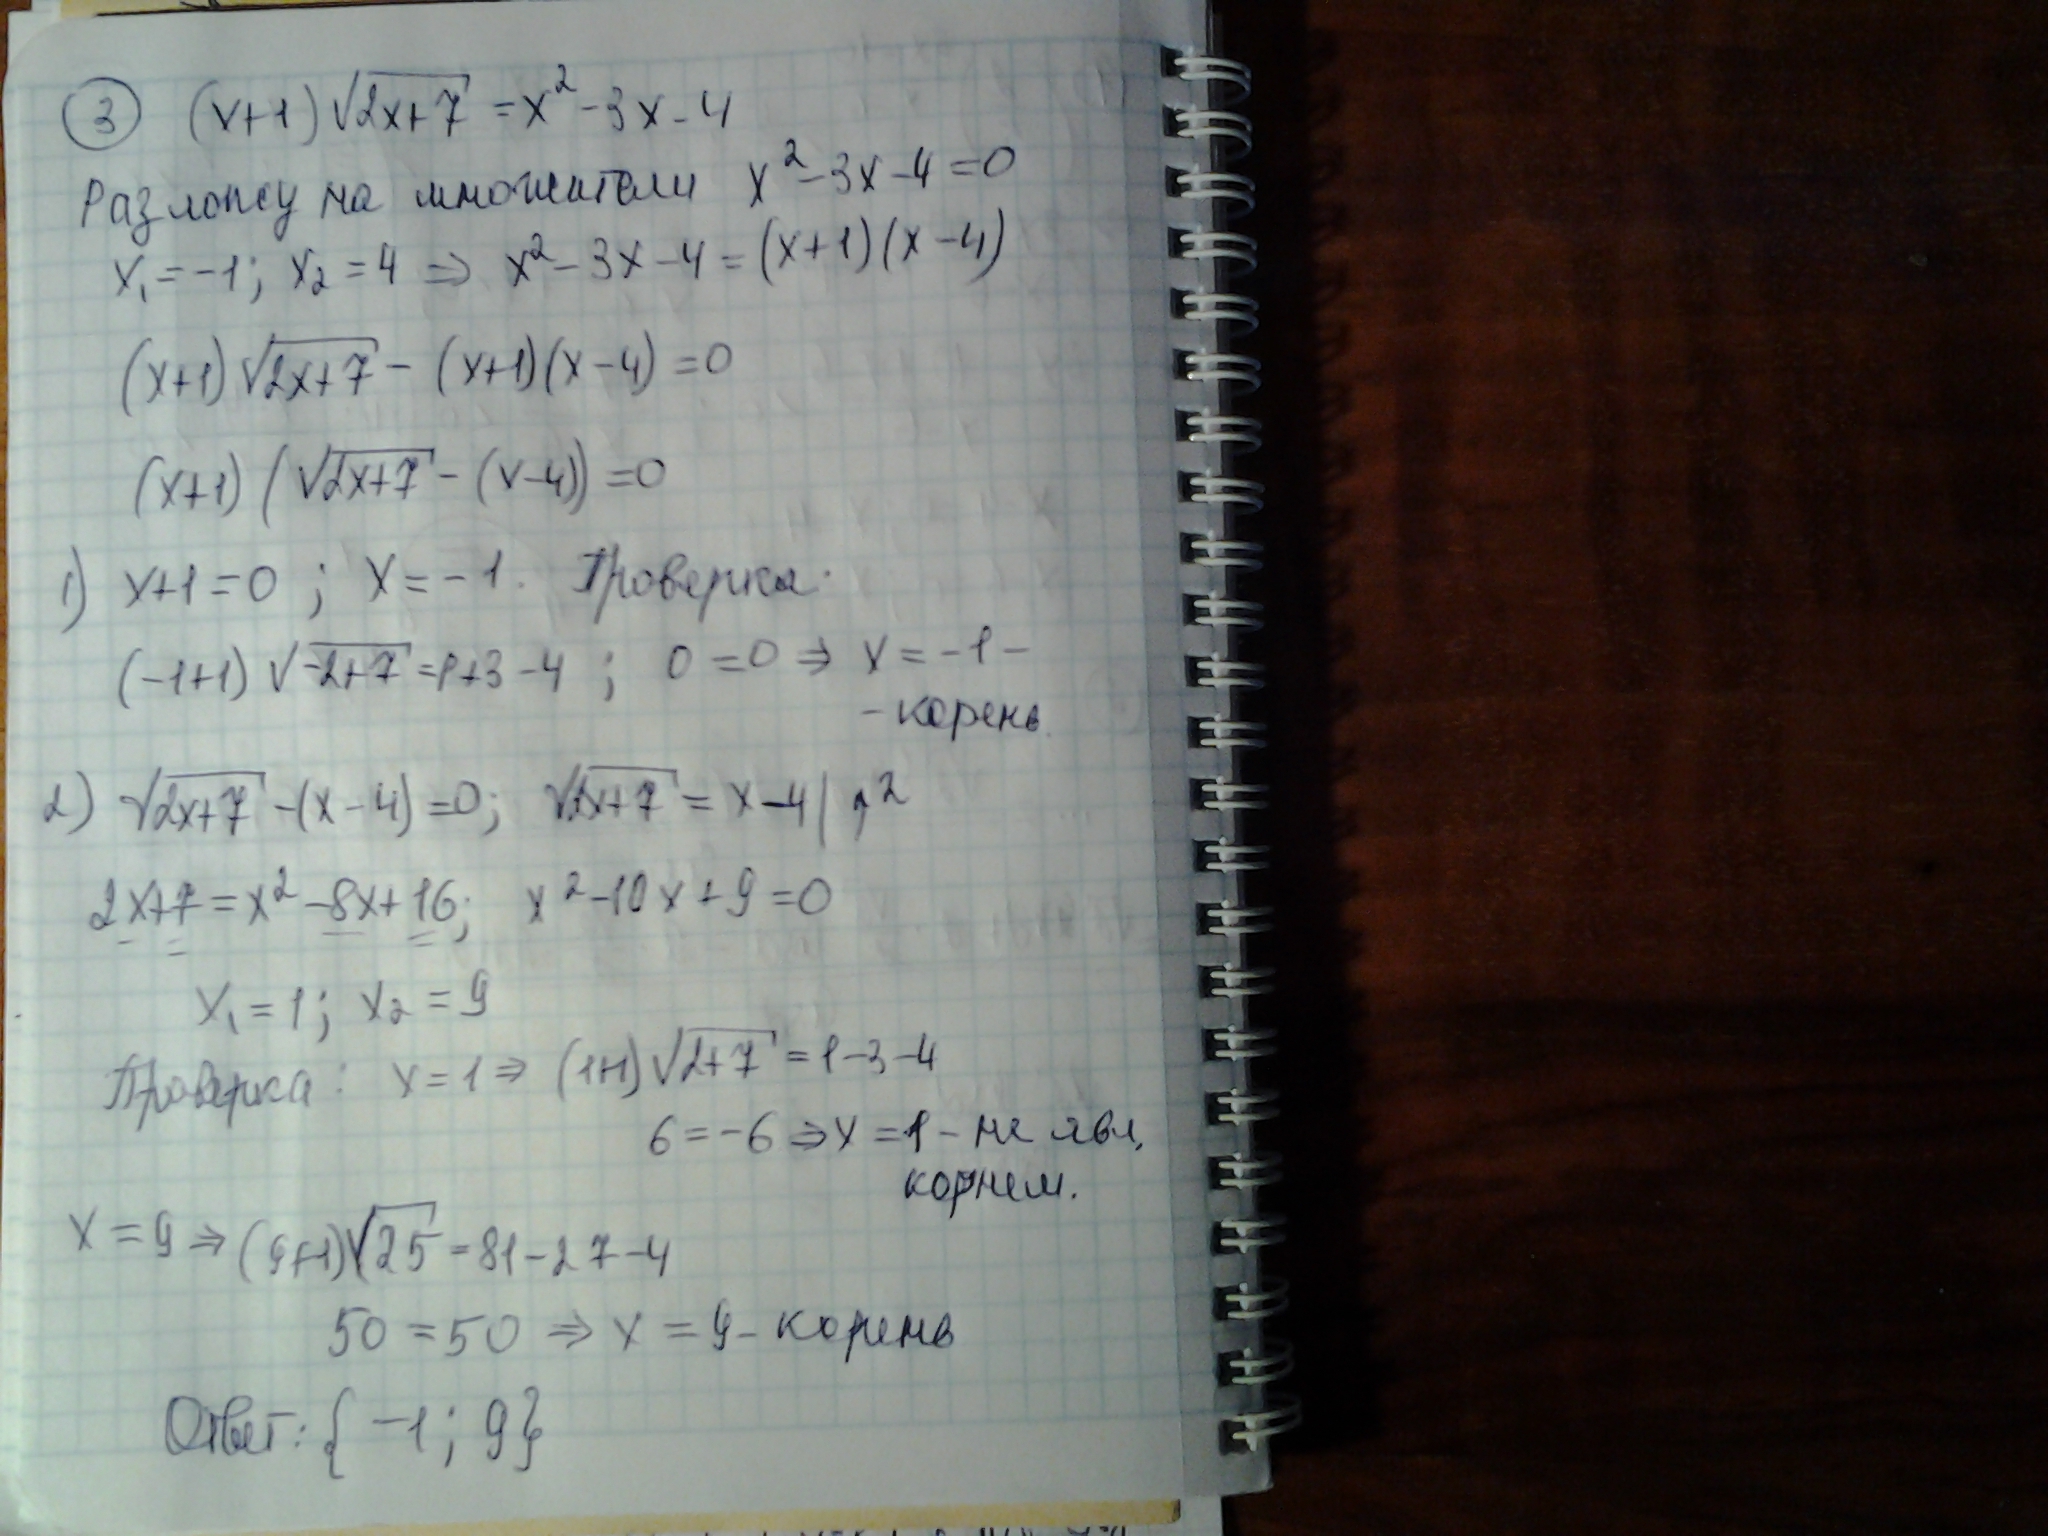 ③ (x+1)√(2x+7) = x² - 3x - 4
Разложу на множители x² - 3x - 4 = 0
x₁ = -1; x₂ = 4 ⇒ x² - 3x - 4 = (x+1)(x-4)
(x+1)√(2x+7) - (x+1)(x-4) = 0
(x+1)(√(2x+7) - (x-4)) = 0
1) x+1 = 0; x = -1. Проверка:
(-1+1)√(-2+7) = 1+3-4; 0 = 0 ⇒ x = -1 -
- корень
2) √(2x+7) - (x-4) = 0; √(2x+7) = x-4 | ↑²
2x+7 = x² - 8x + 16; x² - 10x + 9 = 0
x₁ = 1; x₂ = 9
Проверка: x = 1 ⇒ (1+1)√(2+7) = 1-3-4
6 = -6 ⇒ x = 1 - не явл.
корнем.
x = 9 ⇒ (9+1)√25 = 81-27-4
50 = 50 ⇒ x = 9 - корень
Ответ: {-1; 9}